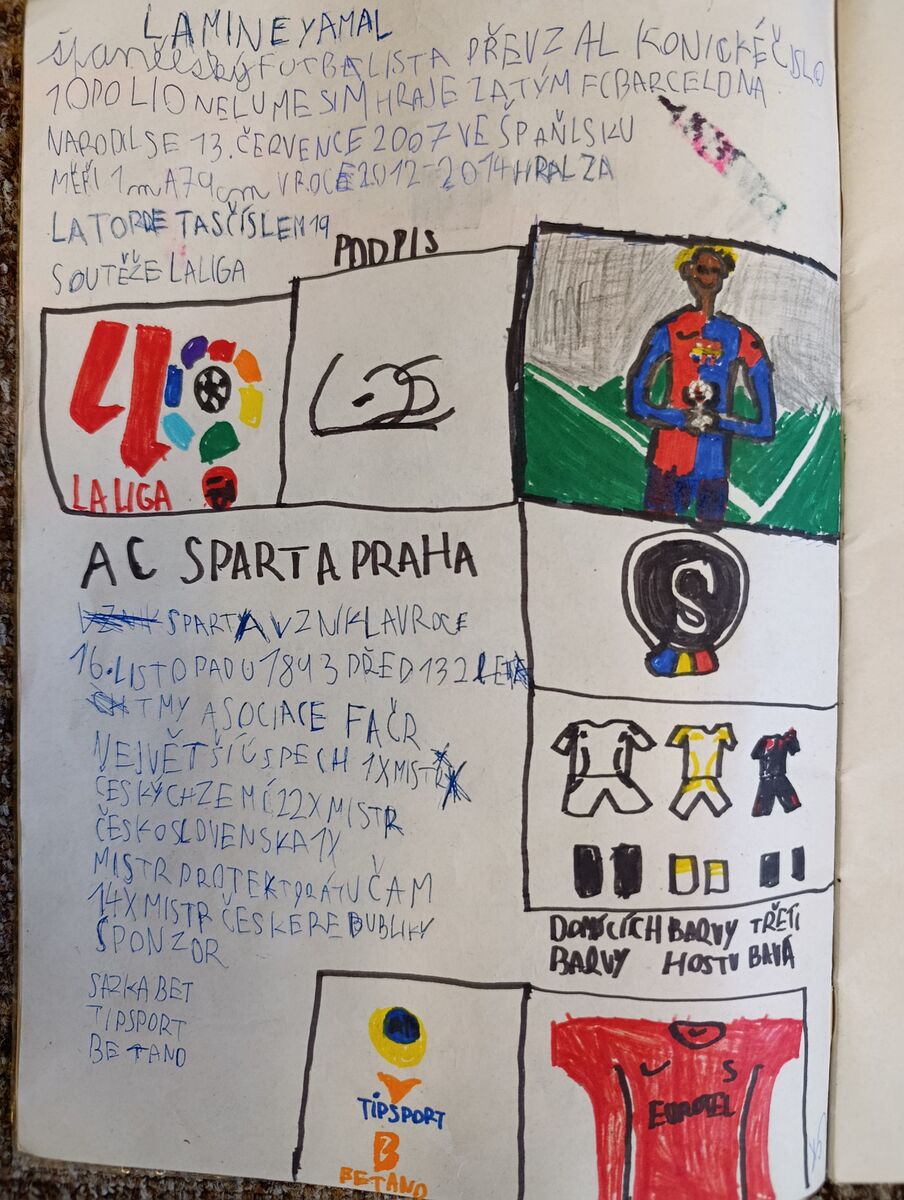 LAMINE YAMAL
španělský FUTBALISTA PŘEVZAL KONICKÉ ČISLO
10 PO LIONELU MESIM HRAJE ZA TÝM FC BARCELONA
NARODIL SE 13. ČERVENCE 2007 VE ŠPAŇLSKU
MĚŘÍ 1m A 79 cm V ROCE 2012-2014 HRAL ZA
LA TORDETA S ČÍSLEM 19
SOUTĚŽE LALIGA
PODPIS
LA LIGA
AC SPARTA PRAHA
SPARTA VZNIKLA V ROCE
16. LISTOPADU 1893 PŘED 132 LETA
TMY ASOCIACE FAČR
NEJVĚTŠÍ ÚSPECH 1X MISTR
ČESKÝCH ZEMÍ 22X MISTR
ČESKOSLOVENSKA 1X
MISTR PROTEKTORÁTU ČAM
14X MISTR ČESKE REBUBLIKY
ŠPONZOR
SAZKA BET
TIPSPORT
BETANO
S
DOMÍCÍCH BARVY
BARVY HOSTU
TŘETI BAVA
TIPSPORT
B
BETANO
S
EUROTEL